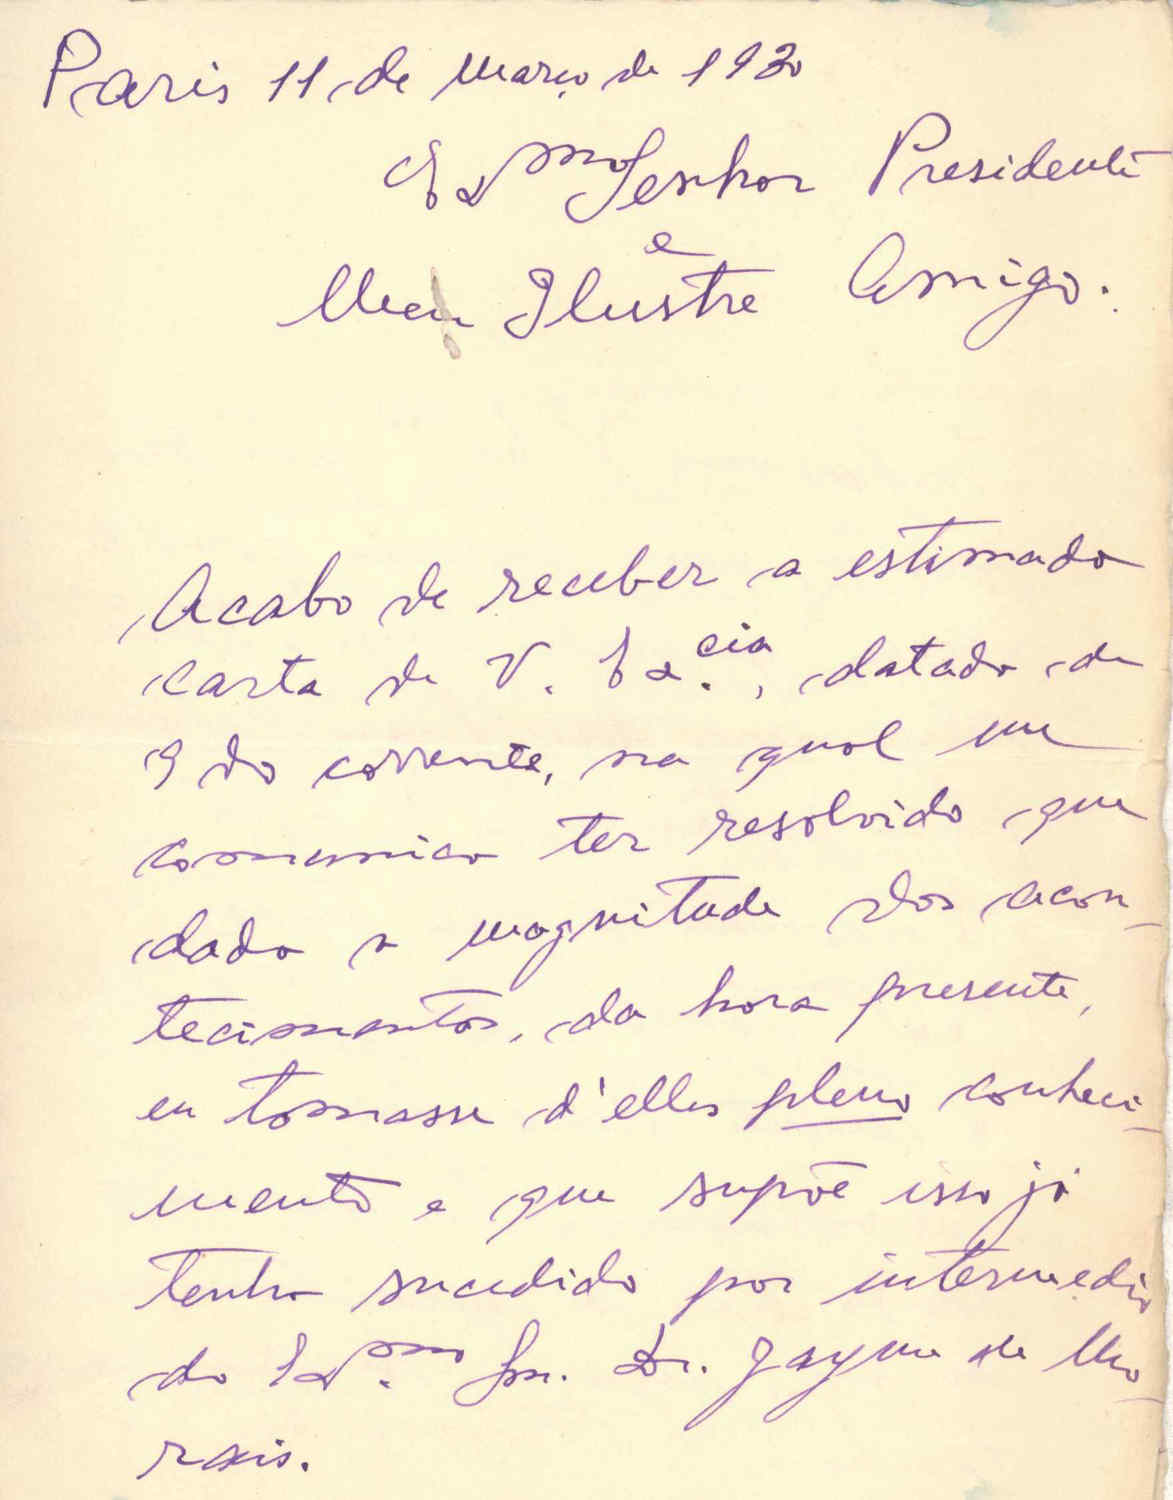 Paris 11 de Março de 1930
Ex.mo Senhor Presidente
e
Meu Ilustre Amigo.
Acabo de receber a estimada
carta de V. Ex.cia, datada de
9 do corrente, na qual me
comunica ter resolvido que
dada a magnitude dos acon-
tecimentos, da hora presente,
eu tomasse d'elles pleno conheci-
mento e que supõe isso já
tenha sucedido por intermedio
do Ex.mo Snr. Dr. Jayme de Mo-
rais.